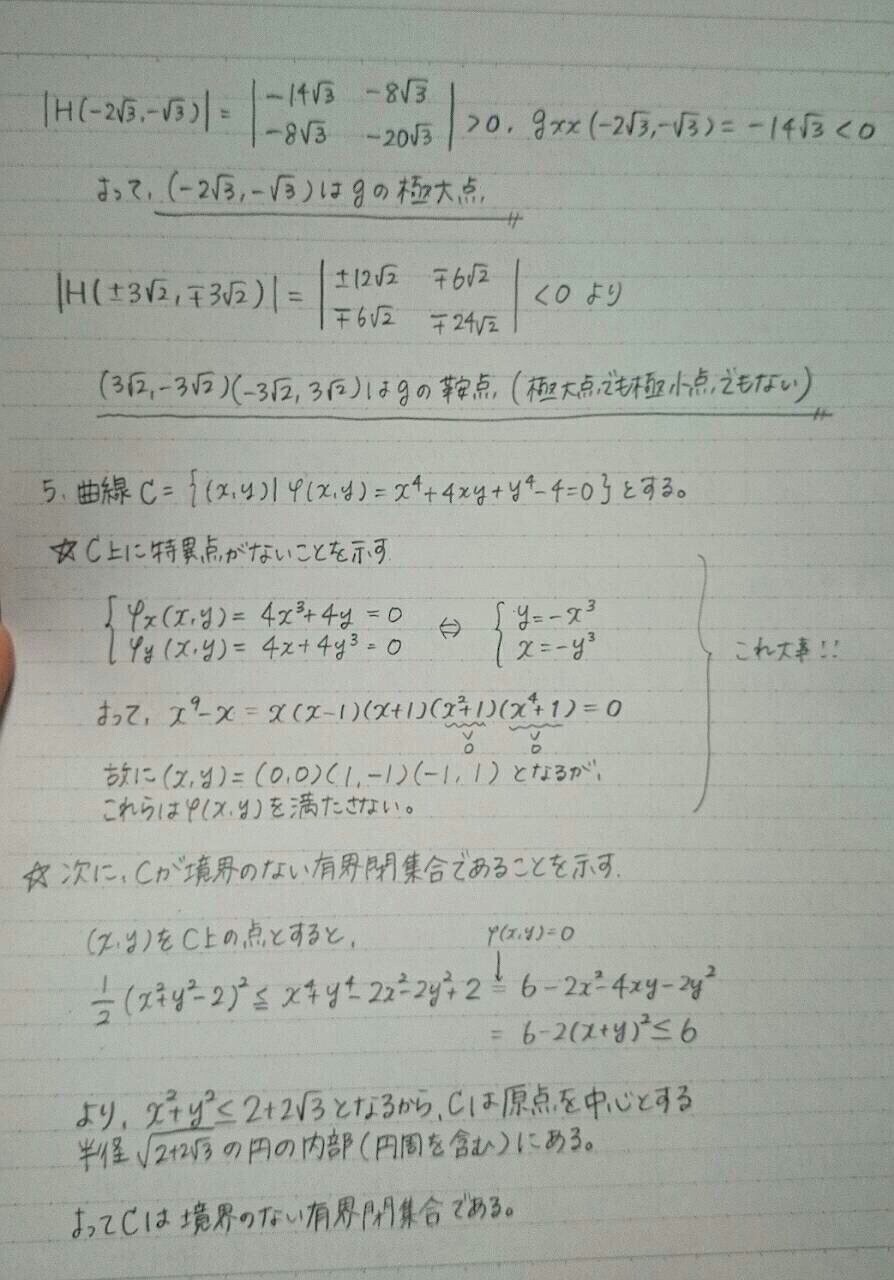 |H(-2√3,-√3)| = | -14√3 -8√3 -8√3 -20√3 | >0, gxx(-2√3,-√3) = -14√3 < 0
よって、(-2√3,-√3)はgの極大点,
|H(±3√2,∓3√2)| = | ±12√2 ∓6√2 ∓6√2 ∓24√2 | <0 より
(3√2,-3√2)(-3√2,3√2)はgの鞍点,(極大点でも極小点でもない)
5. 曲線C={(x,y)|φ(x,y)=x⁴+4xy+y⁴-4=0}とする。
☆ C上に特異点がないことを示す
{ φx(x,y) = 4x³+4y = 0 ⇔ { y=-x³
φy(x,y) = 4x+4y³ = 0 x=-y³
これ大事!!
よって、x⁹-x = x(x-1)(x+1)(x²+1)(x⁴+1) = 0
∨ ∨
0 0
故に(x,y)=(0,0)(1,-1)(-1,1)となるが、
これらはφ(x,y)を満たさない。
☆ 次に、Cが境界のない有界閉集合であることを示す.
(x,y)をC上の点とすると, φ(x,y)=0
↓
1/2 (x²+y²-2)² ≦ x⁴+y⁴-2x²-2y²+2 = 6-2x²-4xy-2y²
= 6-2(x+y)² ≤ 6
より, x²+y² ≤ 2+2√3となるから、Cは原点を中心とする
半径√(2+2√3)の円の内部(円周を含む)にある。
よってCは境界のない有界閉集合である。